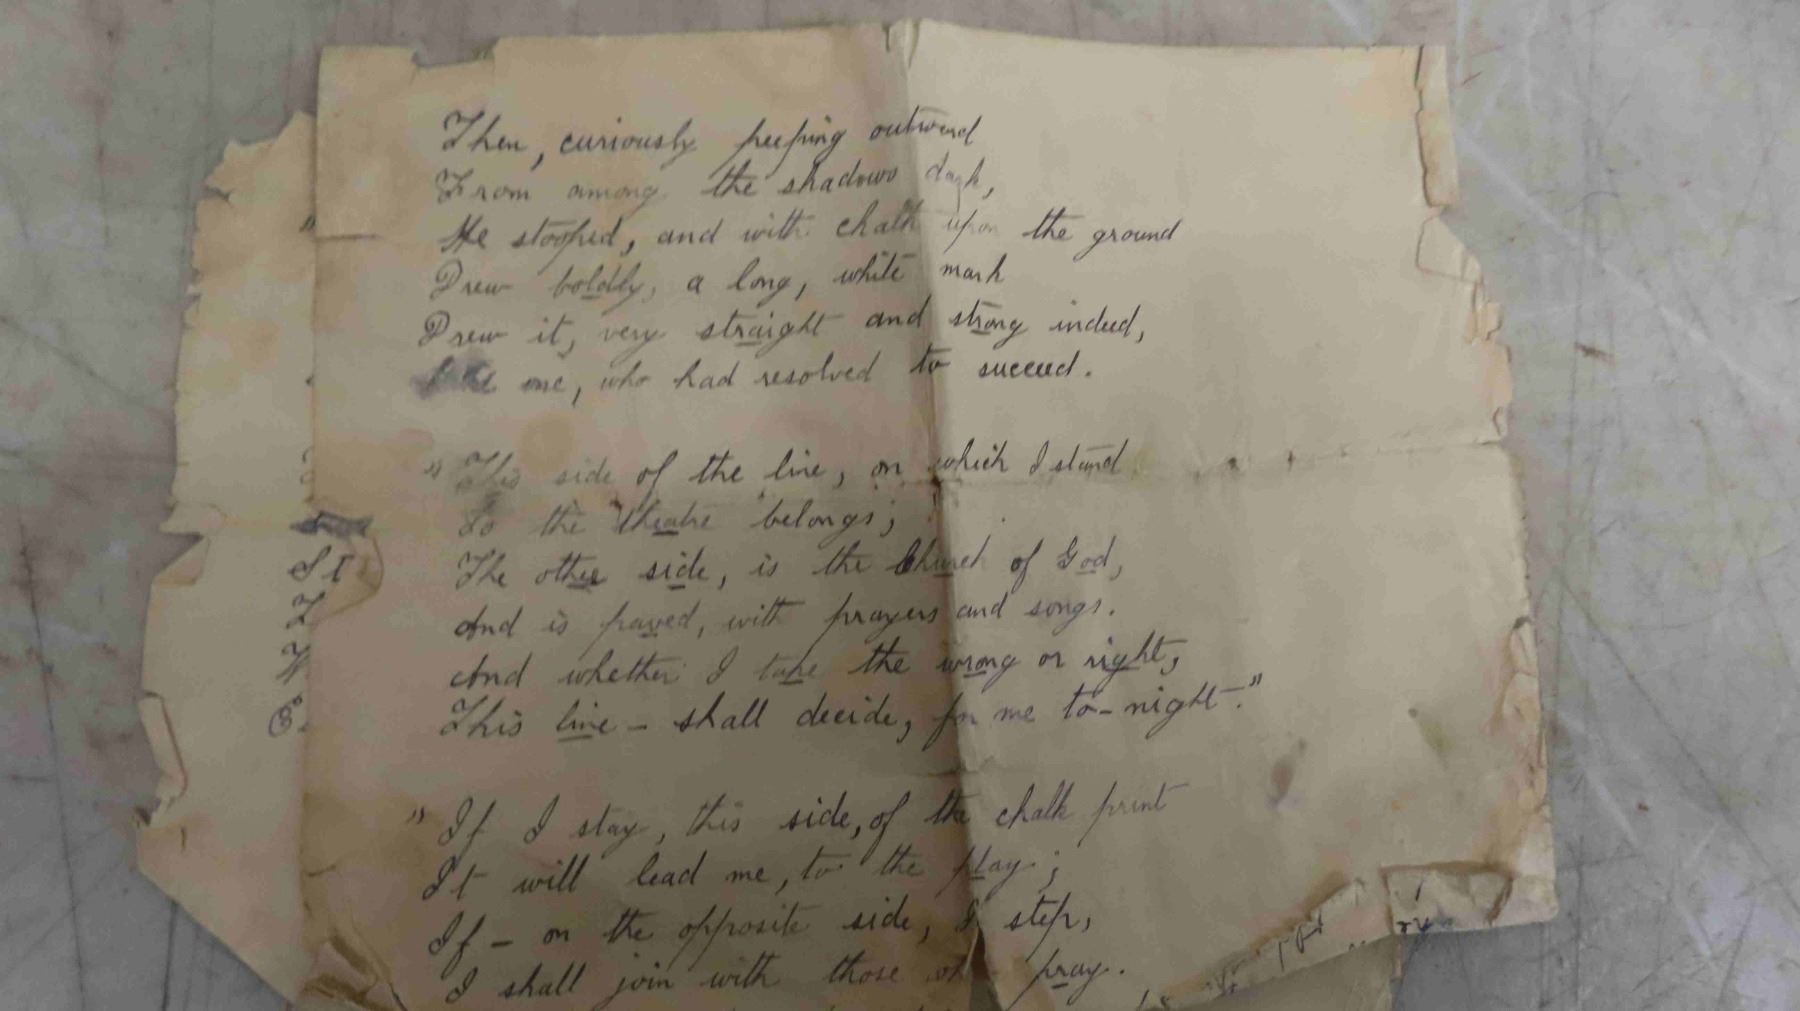 Then, curiously peeping outward
From among the shadows dark,
He stooped, and with chalk upon the ground
Drew boldly, a long, white mark
Drew it, very straight and strong indeed,
Like one, who had resolved to succeed.
"This side of the line, on which I stand
To the theatre belongs;
The other side, is the Church of God,
And is paved, with prayers and songs.
And whether I take the wrong or right,
This line – shall decide, for me to-night."
"If I stay, this side, of the chalk print
It will lead me, to the play;
If – on the opposite side, I step,
I shall join with those who pray.